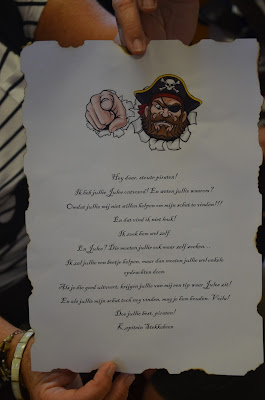 Hey daar, stoute piraten!
Ik heb jullie Juke ontvoerd! En weten jullie waarom?
Omdat jullie mij niet willen helpen om mijn schat te vinden!!!
En dat vind ik niet leuk!
Ik zoek hem wel zelf.
En Juke? Die moeten jullie ook maar zelf zoeken...
Ik zal jullie een beetje helpen, maar dan moeten jullie wel enkele
opdrachten doen.
Als je die goed uitvoert, krijgen jullie van mij een tip waar Juke zit!
En als jullie mijn schat toch nog vinden, mag je hem houden. Voila!
Doe jullie best, piraten!
Kapitein